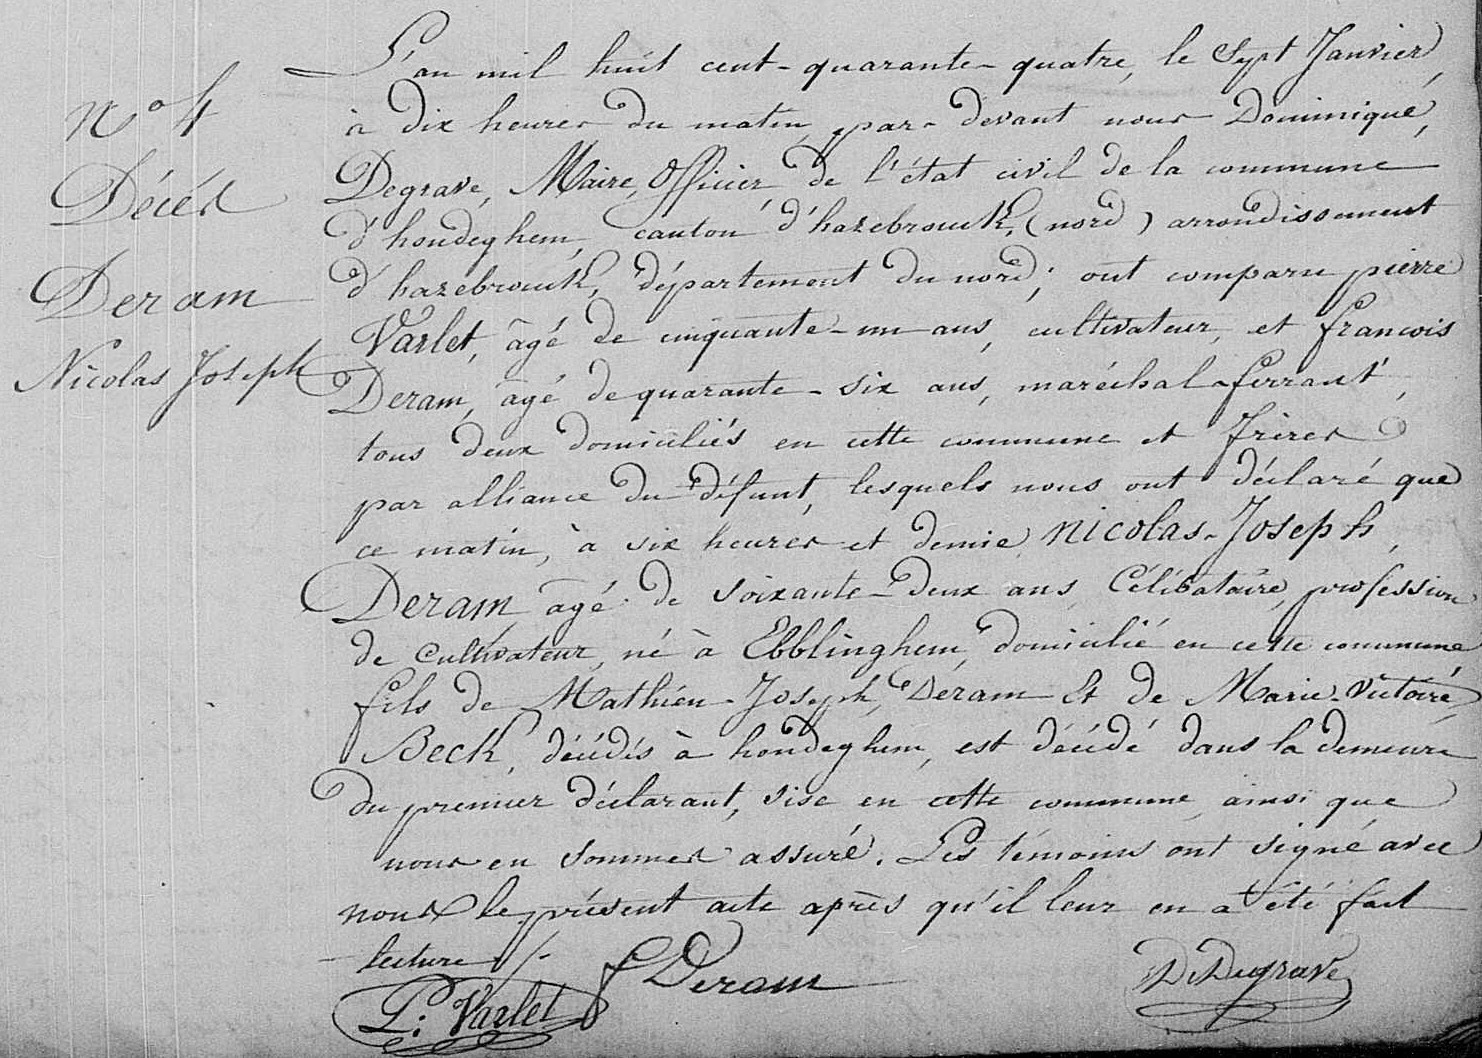 N° 4
Décès
Deram
Nicolas Joseph
L'an mil huit cent-quarante-quatre, le Sept Janvier,
à dix heures du matin, par-devant nous Dominique,
Degrave, Maire, Officier de l'état civil de la commune
d'hondeghem, canton d'hazebrouck, (nord) arrondissement
d'hazebrouck, département du nord; ont comparu pierre
Varlet, âgé de cinquante-un ans, cultivateur, et francois
Deram, âgé de quarante-six ans, maréchal-ferrant,
tous deux domiciliés en cette commune et frères
par alliance du défunt, lesquels nous ont déclaré que
ce matin, à six heures et demie, Nicolas-Joseph,
Deram, âgé de soixante-deux ans, Célibataire, profession
de Cultivateur, né à Ebblinghem, domicilié en cette commune
fils de Mathieu-Joseph, Deram et de Marie-Victoire,
Beck, décédés à hondeghem, est décédé dans la demeure
du premier déclarant, sise en cette commune ainsi que
nous en sommes assuré. Les témoins ont signé avec
nous le présent acte après qu'il leur en a été fait
lecture /-
P: Varlet f Deram D Degrave